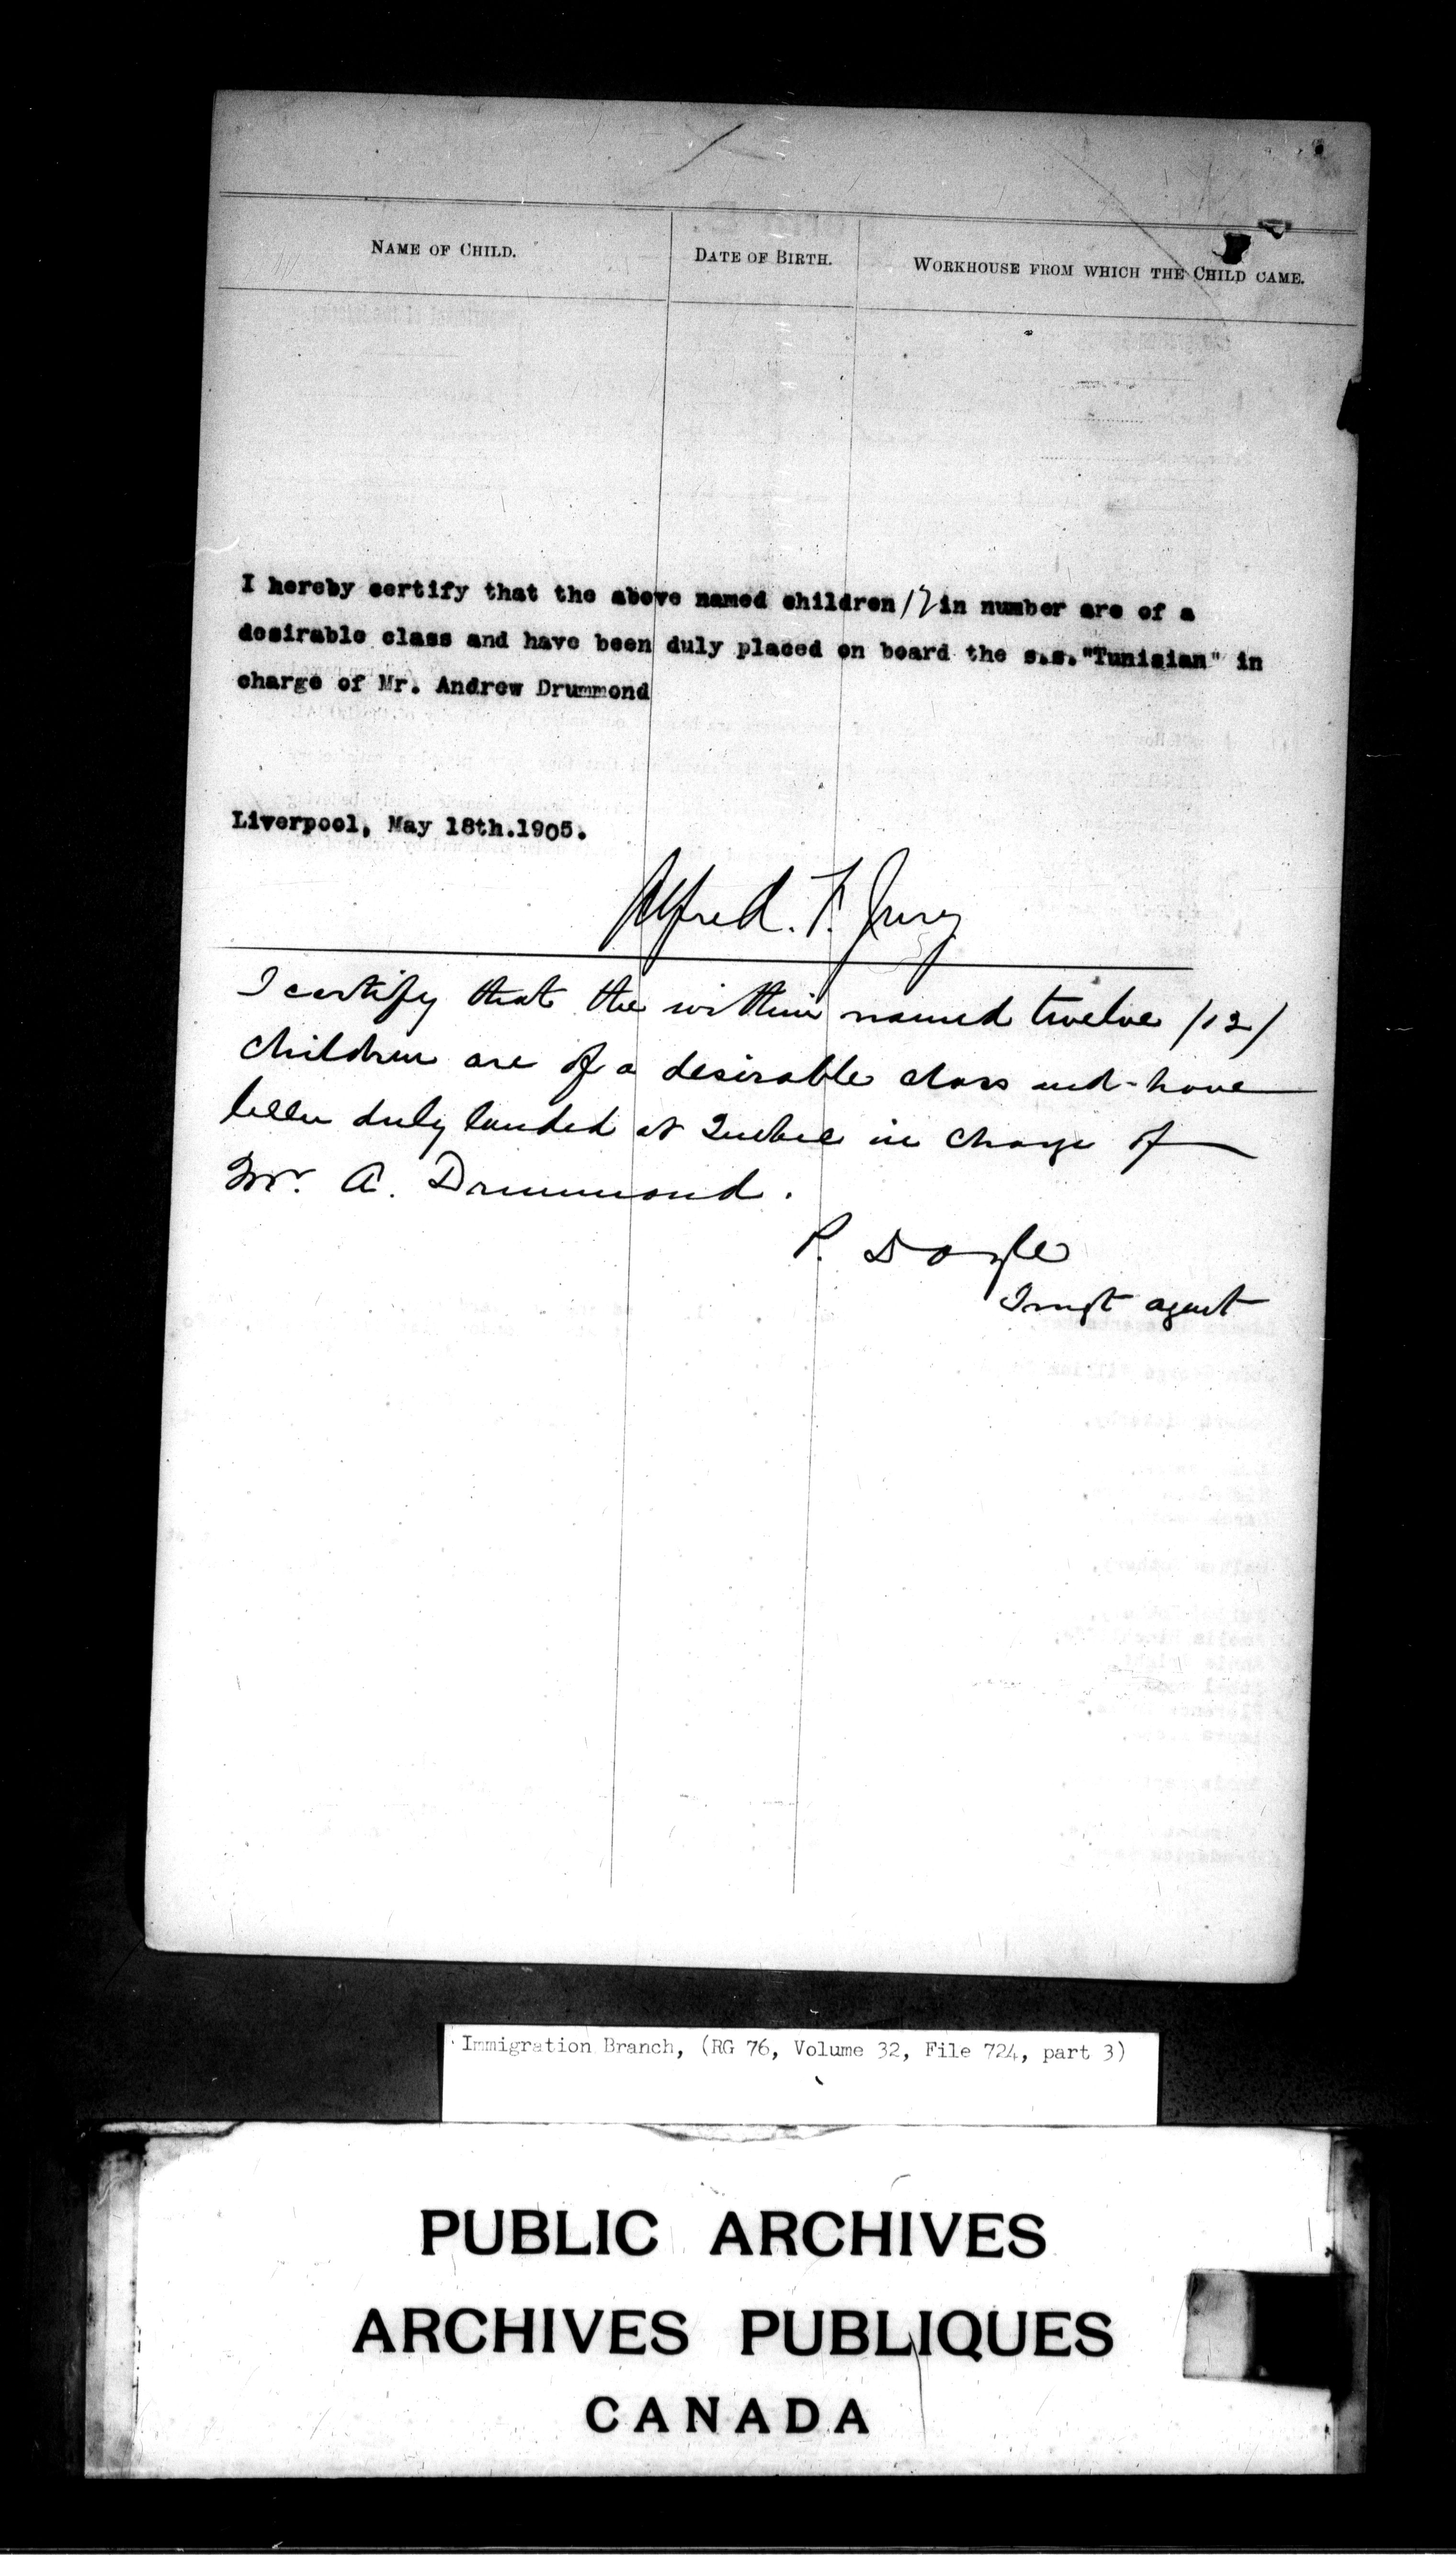 NAME OF CHILD. DATE OF BIRTH. WORKHOUSE FROM WHICH THE CHILD CAME.
I hereby certify that the above named children 12 in number are of a
desirable class and have been duly placed on board the s.s."Tunisian" in
charge of Mr. Andrew Drummond
Liverpool, May 18th.1905.
Alfred. F. Jury
I certify that the within named twelve /12/
children are of a desirable class and have
been duly landed at Quebec in charge of
Mr. A. Drummond.
P. Doyle
Immgt agent
Immigration Branch, (RG 76, Volume 32, File 724, part 3)
PUBLIC ARCHIVES
ARCHIVES PUBLIQUES
CANADA